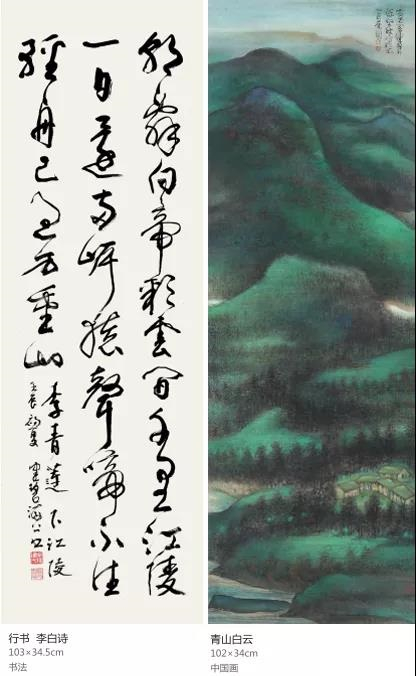 朝辭白帝彩雲間千里江陵
一日還兩岸猿聲啼不住
輕舟已過万重山
李青蓮下江陵
壬辰初夏
行书 李白诗
103×34.5cm
书法
青山白云
102×34cm
中国画